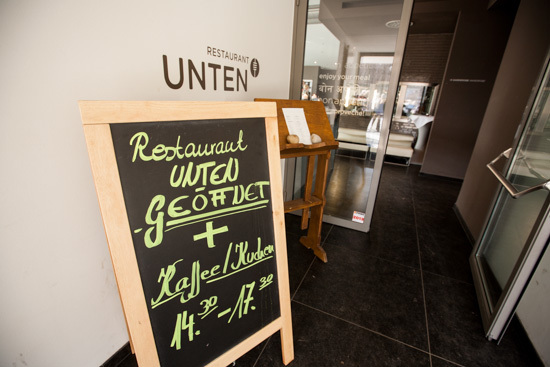 RESTAURANT
UNTEN
enjoy your meal
Restaurant
UNTEN
-GEÖFFNET
+
Kaffee/Kuchen
14.30-17.30